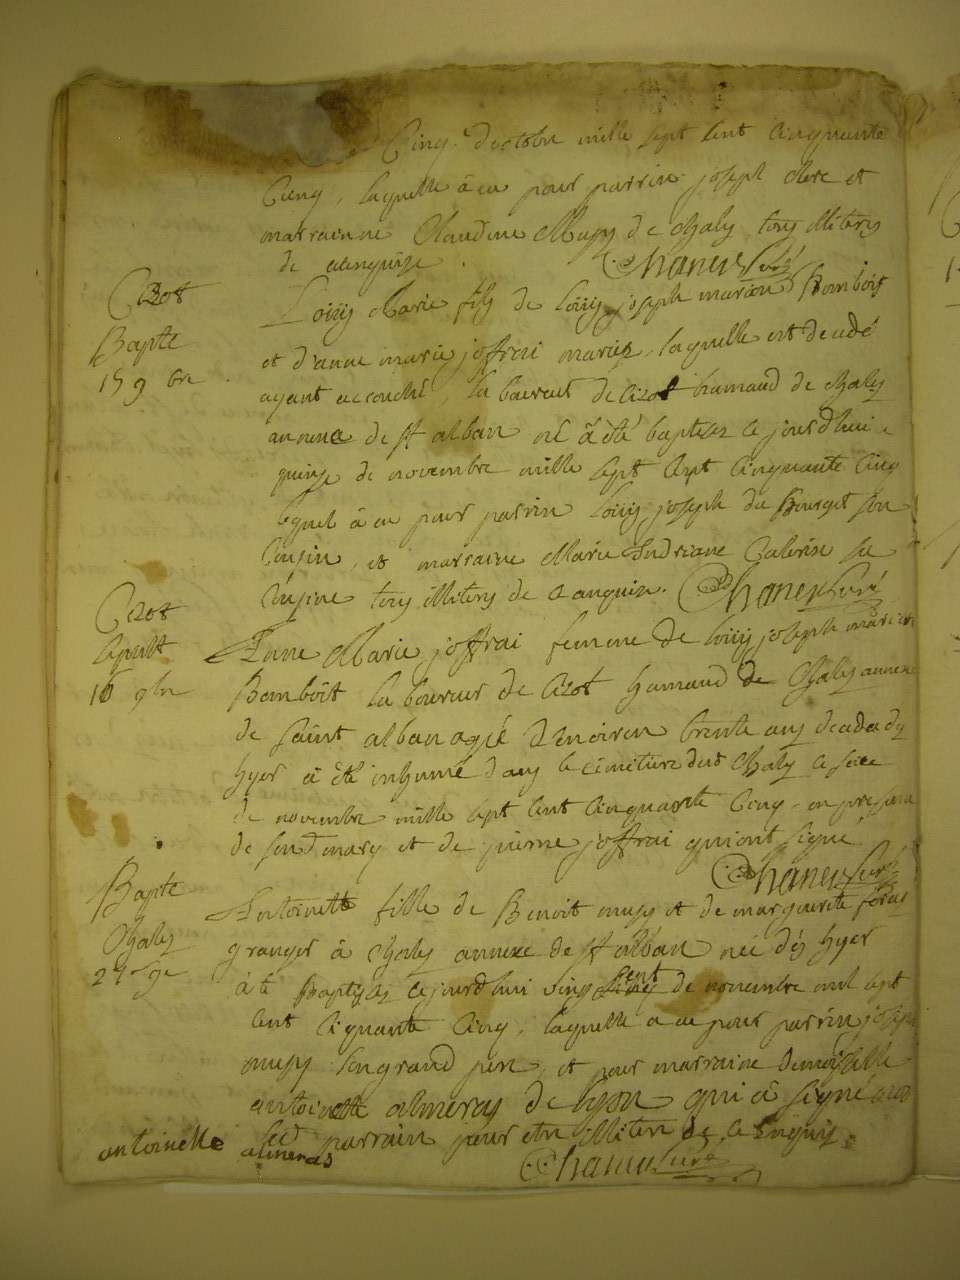 Cinq d'octobre mille sept cent cinquante
Cinq, laquelle à eu pour parrin joseph clerc et
marrainne Claudine Mugy de Chaly tous illiters
de enquize.
Chaney Curé
Cizot
Bapte
15 9bre
Louis Marie fils de Louis joseph marion Bomboit
et d'anne marie joffrai mariez, laquelle est decedé
ayant accouché, laboureur de Cizot hamaud de Chaly
annexe de St alban né à été baptisez ce jourdhui
quinze de novembre mille sept cent cinquante cinq
lequel à eu pour parrin Louis joseph du Bourget son
Cousin, et marraine Marie Andriane Valerin sa
Cousine tous illiters de enquize. Chaney Curé
Cizot
sepult
16 9bre
Anne Marie joffrai femme de Louis joseph marion
Bomboit laboureur de Cizot hamaud de Chaly annexe
de saint alban agée d'environ trente ans decedée dez
hyer à été inhumé dans le cimitiere dud Chaly ce seize
de novembre mille sept cent cinquante cinq en presence
de sond mary et de pierre joffrai qui ont signe
Chaney Curé
Bapte
Chaly
Antoinette fille de Benoit mugy et de marguerite
granger à Chaly annexe de St alban née dez hyer
à té Baptisez ce jourdhui vingt de novembre mil sept
cent cinquante cinq, laquelle a eu pour parrin joseph
mugy son grand pere, et pour marraine demoiselle
antoinette almeras de Lyon qui à signé non
led parrain pour etre illitere de ce enquis.
antoinette almeras
Chaney Curé